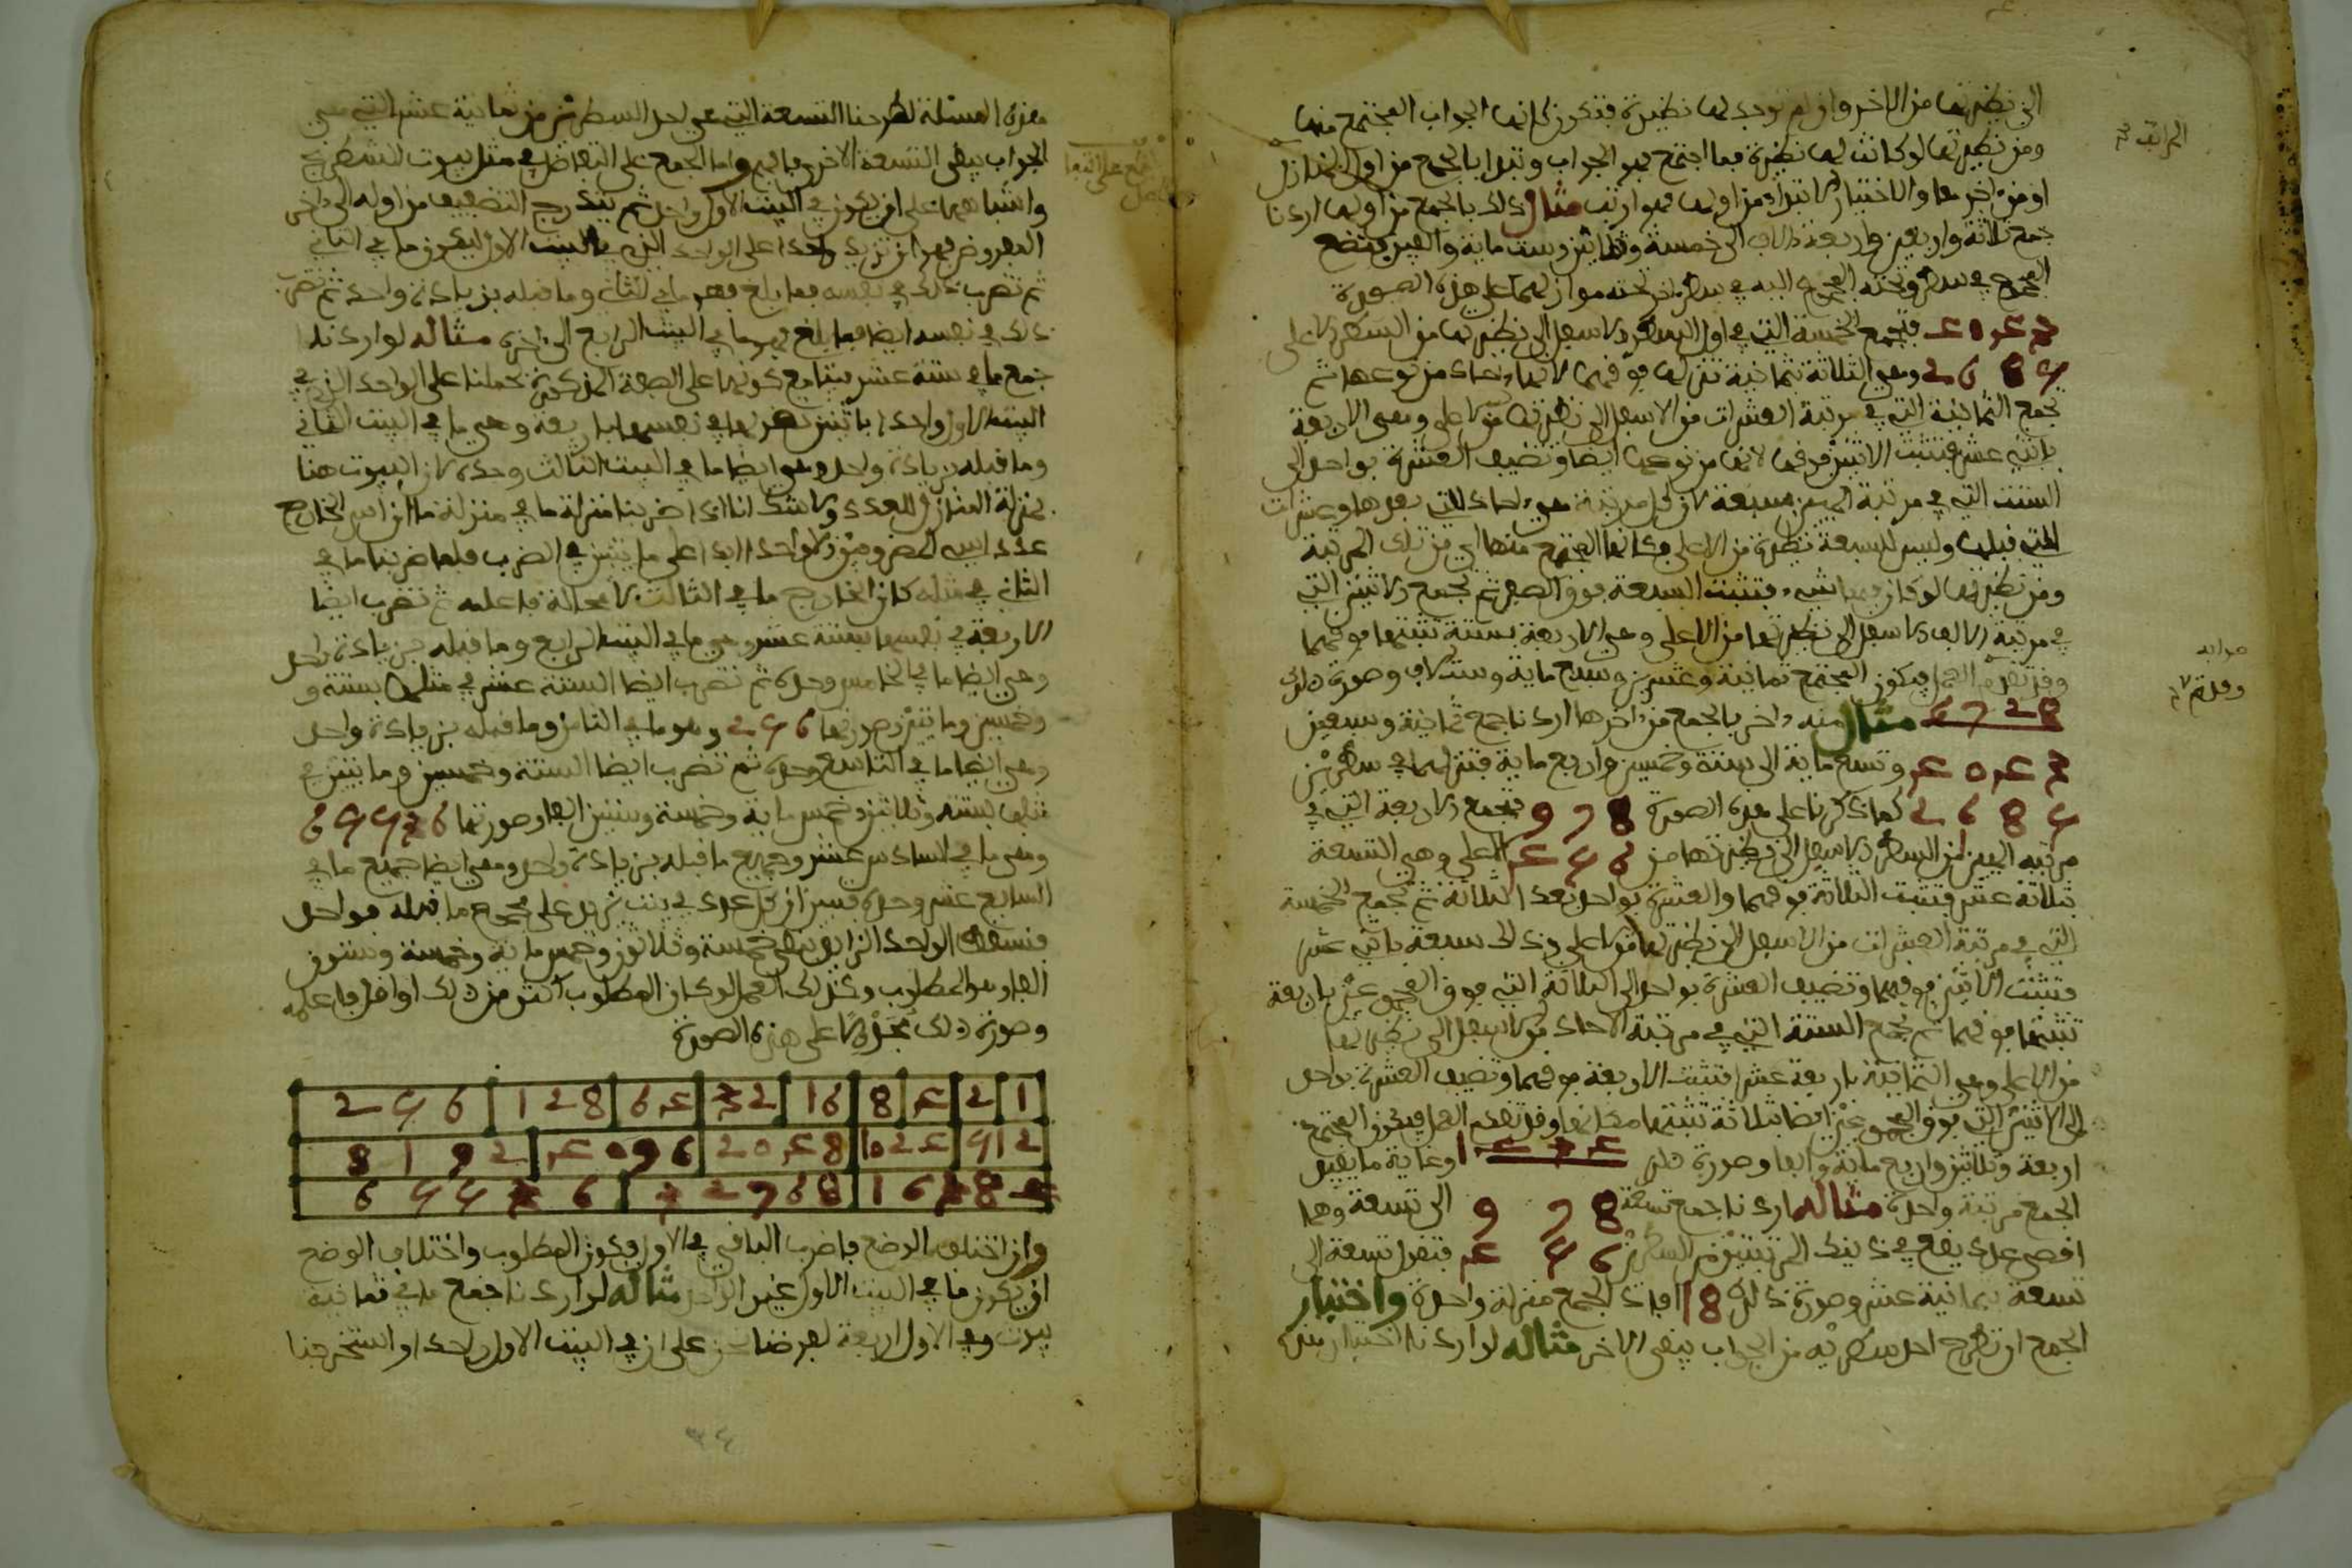 الى نظيرتها من الاخر وان لم توجد لها نظيرة فتكون كانها الجواب المجتمع منها
ومن نظيرتها لو كانت لها نظيرة فما اجتمع فهو الجواب وتبدا بالجمع من اول المنازل
او من اخرها والاختيار الابتداء من اولها فهو ارتب مثال ذلك بالجمع من اولها اردنا
جمع ثلاثة واربعين واربعة الاف الى خمسة وثمانين وست ماية والفين فتضع
المجموع في سطر وتحته المجموع اليه في سطر اخر تحته موازيا لهما على هذه الصورة
فتجمع الخمسة التي في اول السطر الاسفل الى نظيرتها من السطر الاعلى
4 0 4 3
2 6 8 5 وهي الثلاثة بثمانية تنزلها فوقهما لانها احاد من نوعهما ثم
تجمع الثمانية التي في مرتبة العشرات من الاسفل الى نظيرتها من الاعلى وهي الاربعة
باثني عشر فتثبت الاثنين فوقها لانها من نوعها ايضا وتضيف العشرة بواحد الى
الستة التي في مرتبة الميين بسبعة لان كل مرتبة هي احاد للتي بعدها وعشرات
للتي قبلها وليس للسبعة نظيرة من الاعلى فكانها المجتمع منها اي من تلك المرتبة
ومن نظيرتها لو كان فيها شيء فتثبت السبعة فوق الصفر ثم تجمع الاثنين التي
في مرتبة الالف الاسفل الى نظيرتها من الاعلى وهي الاربعة بستة تثبتها فوقهما
وقد تقدم العمل فيكون المجتمع ثمانية وعشرين وسبع ماية وستة الاف وصورة ذلك
6 7 2 8 مثال منه اخر بالجمع من اخرها اردنا جمع ثمانية وسبعين
4 0 4 3 وتسع ماية الى ستة وخمسين واربع ماية فتنزلهما في سطرين
2 6 8 5 كما ذكرنا على هذه الصورة 9 7 8 فتجمع الاربعة التي في
مرتبة الميين من السطر الاسفل الى نظيرتها من 4 5 6 الاعلى وهي التسعة
بثلاثة عشر فتثبت الثلاثة فوقهما والعشرة بواحد بعد الثلاثة ثم تجمع الخمسة
التي في مرتبة العشرات من الاسفل الى نظيرتها من الاعلى وذلك سبعة باثني عشر
فتثبت الاثنين فوقهما وتضيف العشرة بواحد الى الثلاثة التي فوق المجموعين باربعة
تثبتها فوقهما ثم تجمع الستة التي في مرتبة الاحاد من الاسفل الى نظيرتها
من الاعلى وهي الثمانية باربعة عشر فتثبت الاربعة فوقهما وتضيف العشرة بواحد
الى الاثنين التي فوق المجموعين ايضا بثلاثة تثبتها مكانها وقد تقدم العمل فيكون المجتمع
اربعة وثلاثين واربع ماية والفا وصورة ذلك 1 4 3 4 وغاية ما يفيض
الجمع مرتبة واحدة مثاله اردنا جمع تسعة 9 7 8 الى تسعة وهما
اقصى عدد يقع في ذينك المرتبتين من السطرين 4 5 6 فتقول تسعة الى
تسعة بثمانية عشر وصورة ذلك 18 افاد الجمع منزلة واحدة واختبار
الجمع ان تطرح احد سطريه من الجواب يبقى الاخر مثاله لو اردنا اختبار هذه
المراتب
صوابه
وقد تم
هذه المسئلة لطرحنا التسعة التي هي احد السطرين من ثمانية عشر التي هي
الجواب يبقى التسعة الاخرى فافهم واما الجمع على التفاضل في مثل بيوت الشطرنج
واشباههما على ان يكون في البيت الاول واحد ثم يتدرج التضعيف من اوله الى اخر
المفروض فهو ان تزيد واحدا على الواحد الذي في البيت الاول ليكون ما في الثاني
ثم تضرب ذلك في نفسه فما بلغ فهو ما في الثاني وما قبله بزيادة واحد ثم تضرب
ذلك في نفسه ايضا فما بلغ فهو ما في البيت الرابع الى اخره مثاله لو اردنا
جمع ما في ستة عشر بيتا مع كونها على الصفة المذكورة لحملنا على الواحد الذي في
البيت الاول واحدا باثنين نضربها في نفسها باربعة وهي ما في البيت الثاني
وما قبله بزيادة واحد وهي ايضا ما في البيت الثالث وحده لان البيوت هنا
بمنزلة المنازل للعدد ولا شك انا اذا ضربنا منزلة ما في منزلة ما ان اس الخارج
عدد اسي المضروبين الا واحدا ابدا على ما تبين في الضرب فلما ضربنا ما في
الثاني في مثله كان الخارج ما في الثالث لا محالة فاعلمه ثم نضرب ايضا
الاربعة في نفسها بستة عشر وهي ما في البيت الرابع وما قبله بزيادة واحد
وهي ايضا ما في الخامس وحده ثم نضرب ايضا الستة عشر في مثلها بستة و
وخمسين وماتين وصورتها 2 5 6 وهو ما في الثامن وما قبله بزيادة واحد
وهي ايضا ما في التاسع وحده ثم نضرب ايضا الستة وخمسين وماتين في
مثلها بستة وثلاثين وخمس ماية وخمسة وستين الفا وصورتها 6 5 5 3 6
وهي ما في السادس عشر وجميع ما قبله بزيادة واحد وهي ايضا جميع ما في
السابع عشر وحده فبين ان كل عدد في بيت يزيد على مجموع ما قبله بواحد
فنسقط الواحد الزايد يبقى خمسة وثلاثون وخمس ماية وخمسة وستون
الفا وهو المطلوب وكذلك العمل لو كان المطلوب اكثر من ذلك او اقل فاعلمه
وصورة ذلك مجدولا على هذه الصورة
1 | 2 | 4 | 8 | 16 | 32 | 64 | 128 | 256
512 | 1024 | 2048 | 4096 | 8192
16384 | 32768 | 65536
وان اختلف الوضع فاضرب الباقي في الاول فيكون المطلوب واختلاف الوضع
ان يكون ما في البيت الاول غير الواحد مثاله لو اردنا جمع ما في ثمانية
بيوت وفي الاول اربعة لفرضنا على ان في البيت الاول واحدا واستخرجنا